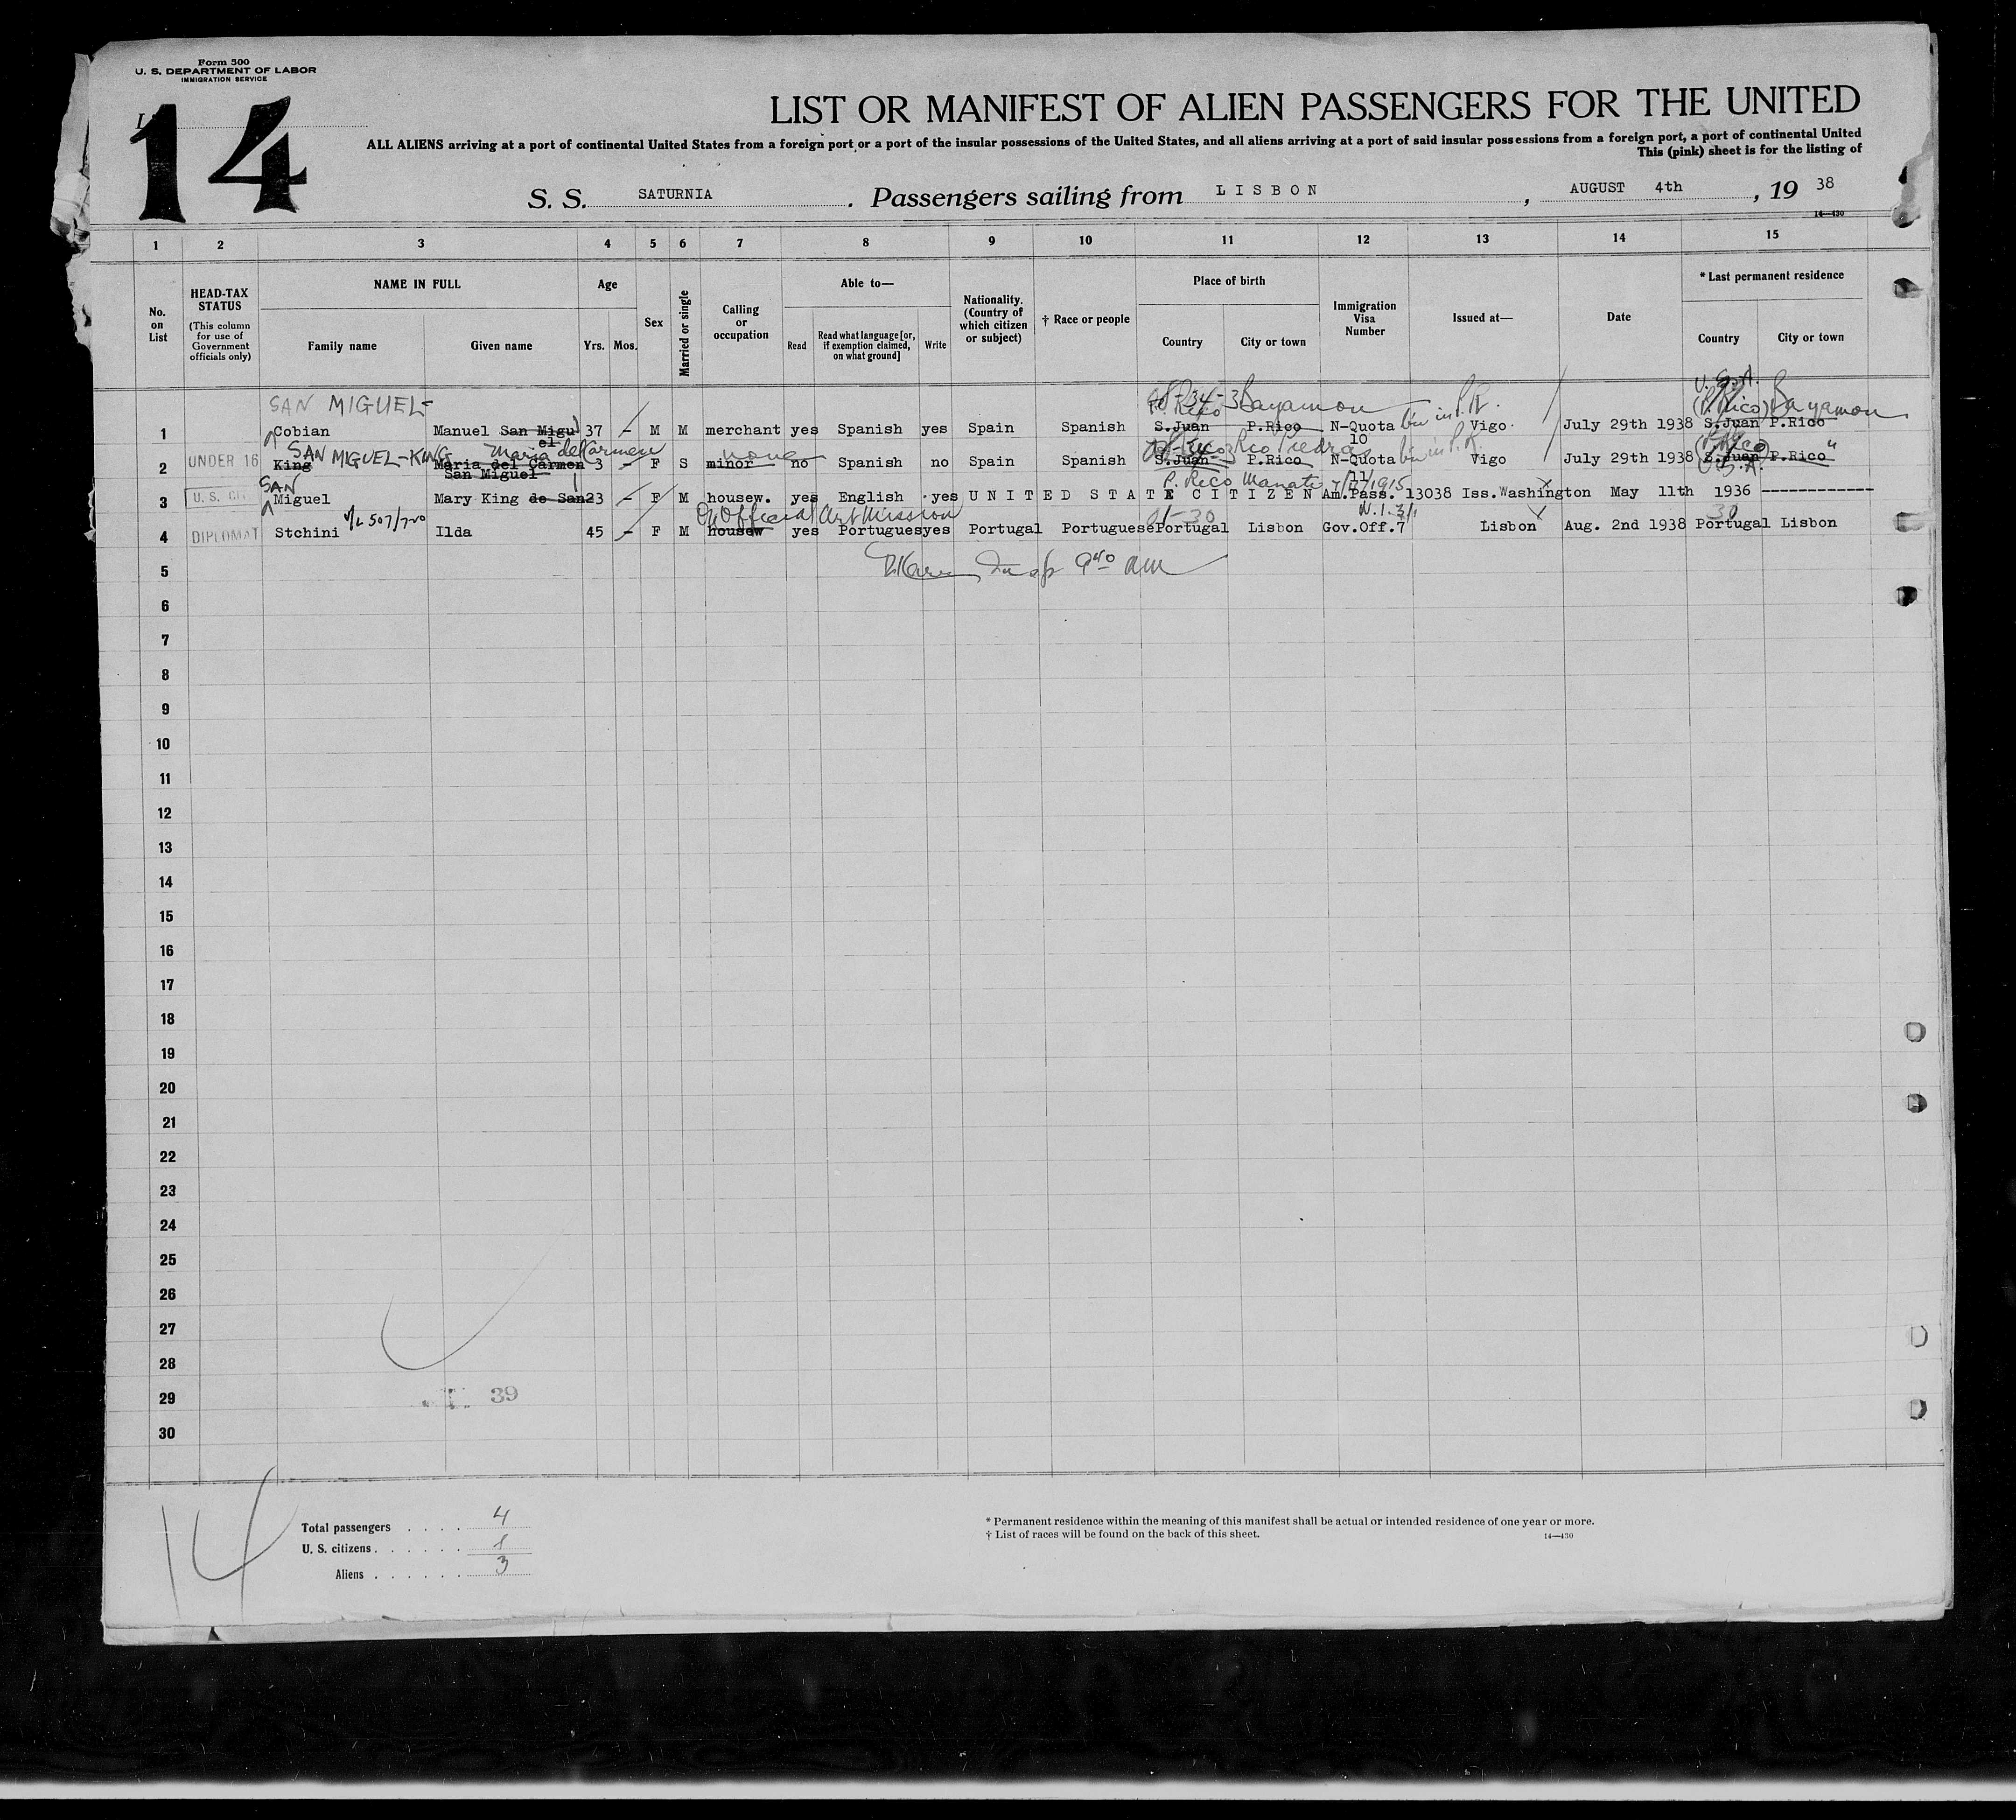 Form 500
U. S. DEPARTMENT OF LABOR
IMMIGRATION SERVICE
14
LIST OR MANIFEST OF ALIEN PASSENGERS FOR THE UNITED
ALL ALIENS arriving at a port of continental United States from a foreign port or a port of the insular possessions of the United States, and all aliens arriving at a port of said insular possessions from a foreign port, a port of continental United
This (pink) sheet is for the listing of
S. S. SATURNIA. Passengers sailing from LISBON, AUGUST 4th, 19 38
14—430
1 2 3 4 5 6 7 8 9 10 11 12 13 14 15
No. on List
HEAD-TAX STATUS
(This column for use of Government officials only)
NAME IN FULL
Family name Given name
Age
Yrs. Mos.
Sex
Married or single
Calling or occupation
Able to—
Read Read what language [or, if exemption claimed, on what ground] Write
Nationality. (Country of which citizen or subject)
† Race or people
Place of birth
Country City or town
Immigration Visa Number
Issued at—
Date
* Last permanent residence
Country City or town
SAN MIGUEL- P. Rico Bayamon P.R. U.S.A. (P. Rico) Bayamon
1 Cobian Manuel San Miguel 37 – M M merchant yes Spanish yes Spain Spanish S.Juan P.Rico N-Quota Vigo July 29th 1938 S.Juan P.Rico
SAN MIGUEL-KING Maria del Carmen none Rio Piedras 10 P.R.
2 UNDER 16 King Maria del Carmen San Miguel 3 – F S minor no Spanish no Spain Spanish S.Juan P.Rico N-Quota Vigo July 29th 1938 S.Juan P.Rico "
SAN P. Rico Manati 1915 U.S.A.
3 U. S. CIT Miguel Mary King de San 23 – F M housew. yes English yes UNITED STATE CITIZEN Am.Pass. 13038 Iss.Washington May 11th 1936 ------------
Official Art Mission 30
4 DIPLOMAT Stchini 507/720 Ilda 45 – F M housew yes Portugues yes Portugal Portuguese Portugal Lisbon Gov.Off.7 Lisbon Aug. 2nd 1938 Portugal Lisbon
5
6
7
8
9
10
11
12
13
14
15
16
17
18
19
20
21
22
23
24
25
26
27
28
29 39
30
14
Total passengers . . . . 4
U. S. citizens . . . . . . 1
Aliens . . . . . . 3
* Permanent residence within the meaning of this manifest shall be actual or intended residence of one year or more.
† List of races will be found on the back of this sheet. 14—430